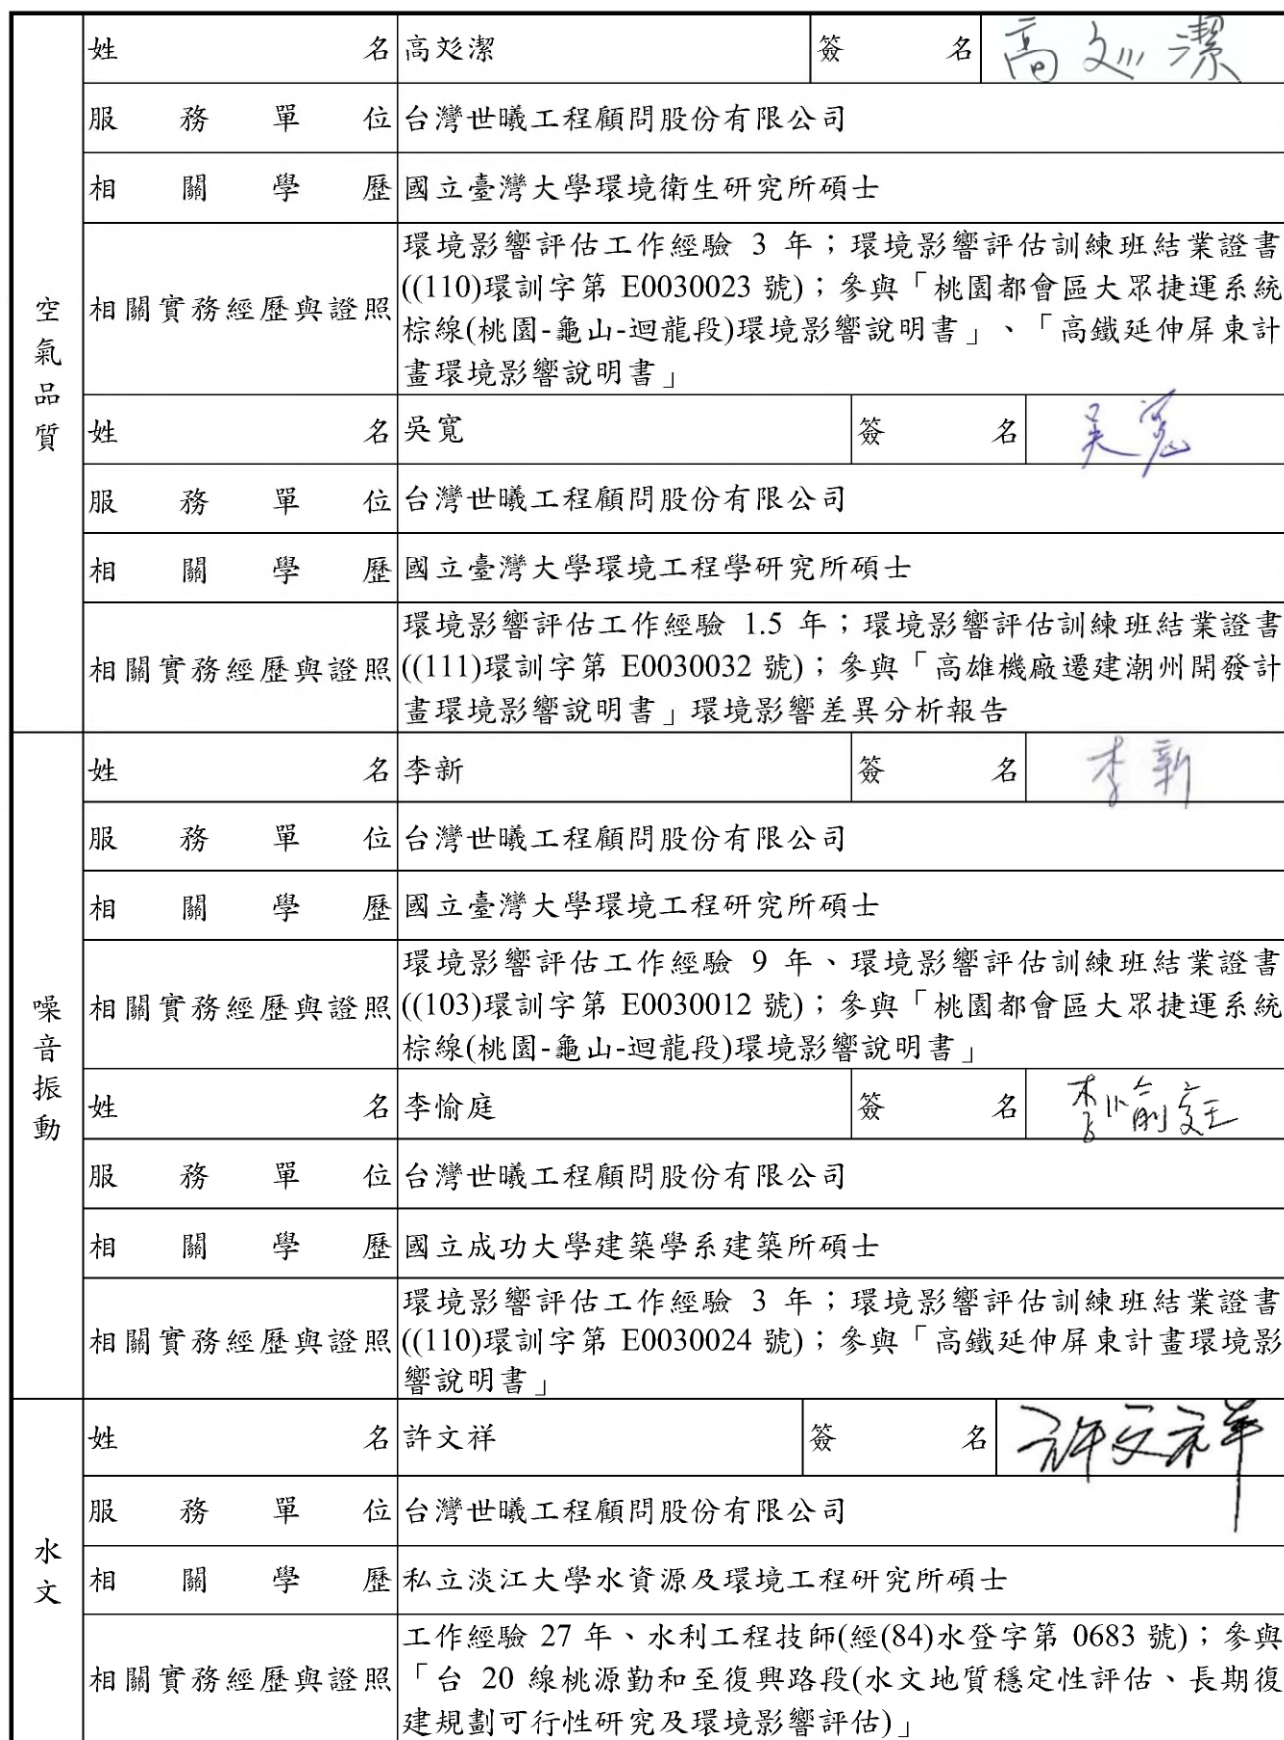 空氣品質
姓名 高彣潔 簽名 高彣潔
服務單位 台灣世曦工程顧問股份有限公司
相關學歷 國立臺灣大學環境衛生研究所碩士
相關實務經歷與證照 環境影響評估工作經驗 3 年；環境影響評估訓練班結業證書
((110)環訓字第 E0030023 號)；參與「桃園都會區大眾捷運系統
棕線(桃園-龜山-迴龍段)環境影響說明書」、「高鐵延伸屏東計
畫環境影響說明書」
姓名 吳寬 簽名 吳寬
服務單位 台灣世曦工程顧問股份有限公司
相關學歷 國立臺灣大學環境工程學研究所碩士
相關實務經歷與證照 環境影響評估工作經驗 1.5 年；環境影響評估訓練班結業證書
((111)環訓字第 E0030032 號)；參與「高雄機廠遷建潮州開發計
畫環境影響說明書」環境影響差異分析報告
噪音振動
姓名 李新 簽名 李新
服務單位 台灣世曦工程顧問股份有限公司
相關學歷 國立臺灣大學環境工程研究所碩士
相關實務經歷與證照 環境影響評估工作經驗 9 年、環境影響評估訓練班結業證書
((103)環訓字第 E0030012 號)；參與「桃園都會區大眾捷運系統
棕線(桃園-龜山-迴龍段)環境影響說明書」
姓名 李愉庭 簽名 李愉庭
服務單位 台灣世曦工程顧問股份有限公司
相關學歷 國立成功大學建築學系建築所碩士
相關實務經歷與證照 環境影響評估工作經驗 3 年；環境影響評估訓練班結業證書
((110)環訓字第 E0030024 號)；參與「高鐵延伸屏東計畫環境影
響說明書」
水文
姓名 許文祥 簽名 許文祥
服務單位 台灣世曦工程顧問股份有限公司
相關學歷 私立淡江大學水資源及環境工程研究所碩士
相關實務經歷與證照 工作經驗 27 年、水利工程技師(經(84)水登字第 0683 號)；參與
「台 20 線桃源勤和至復興路段(水文地質穩定性評估、長期復
建規劃可行性研究及環境影響評估)」